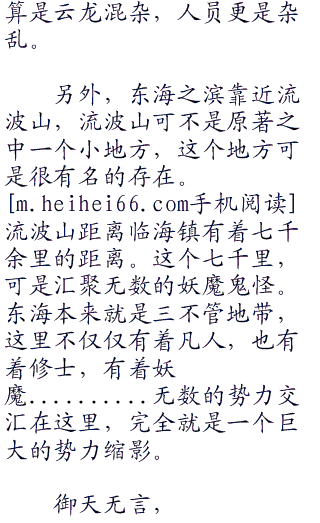 算是云龙混杂，人员更是杂
乱。
另外，东海之滨靠近流
波山，流波山可不是原著之
中一个小地方，这个地方可
是很有名的存在。
[m.heihei66.com手机阅读]
流波山距离临海镇有着七千
余里的距离。这个七千里，
可是汇聚无数的妖魔鬼怪。
东海本来就是三不管地带，
这里不仅仅有着凡人，也有
着修士，有着妖
魔..........无数的势力交
汇在这里，完全就是一个巨
大的势力缩影。
御天无言，